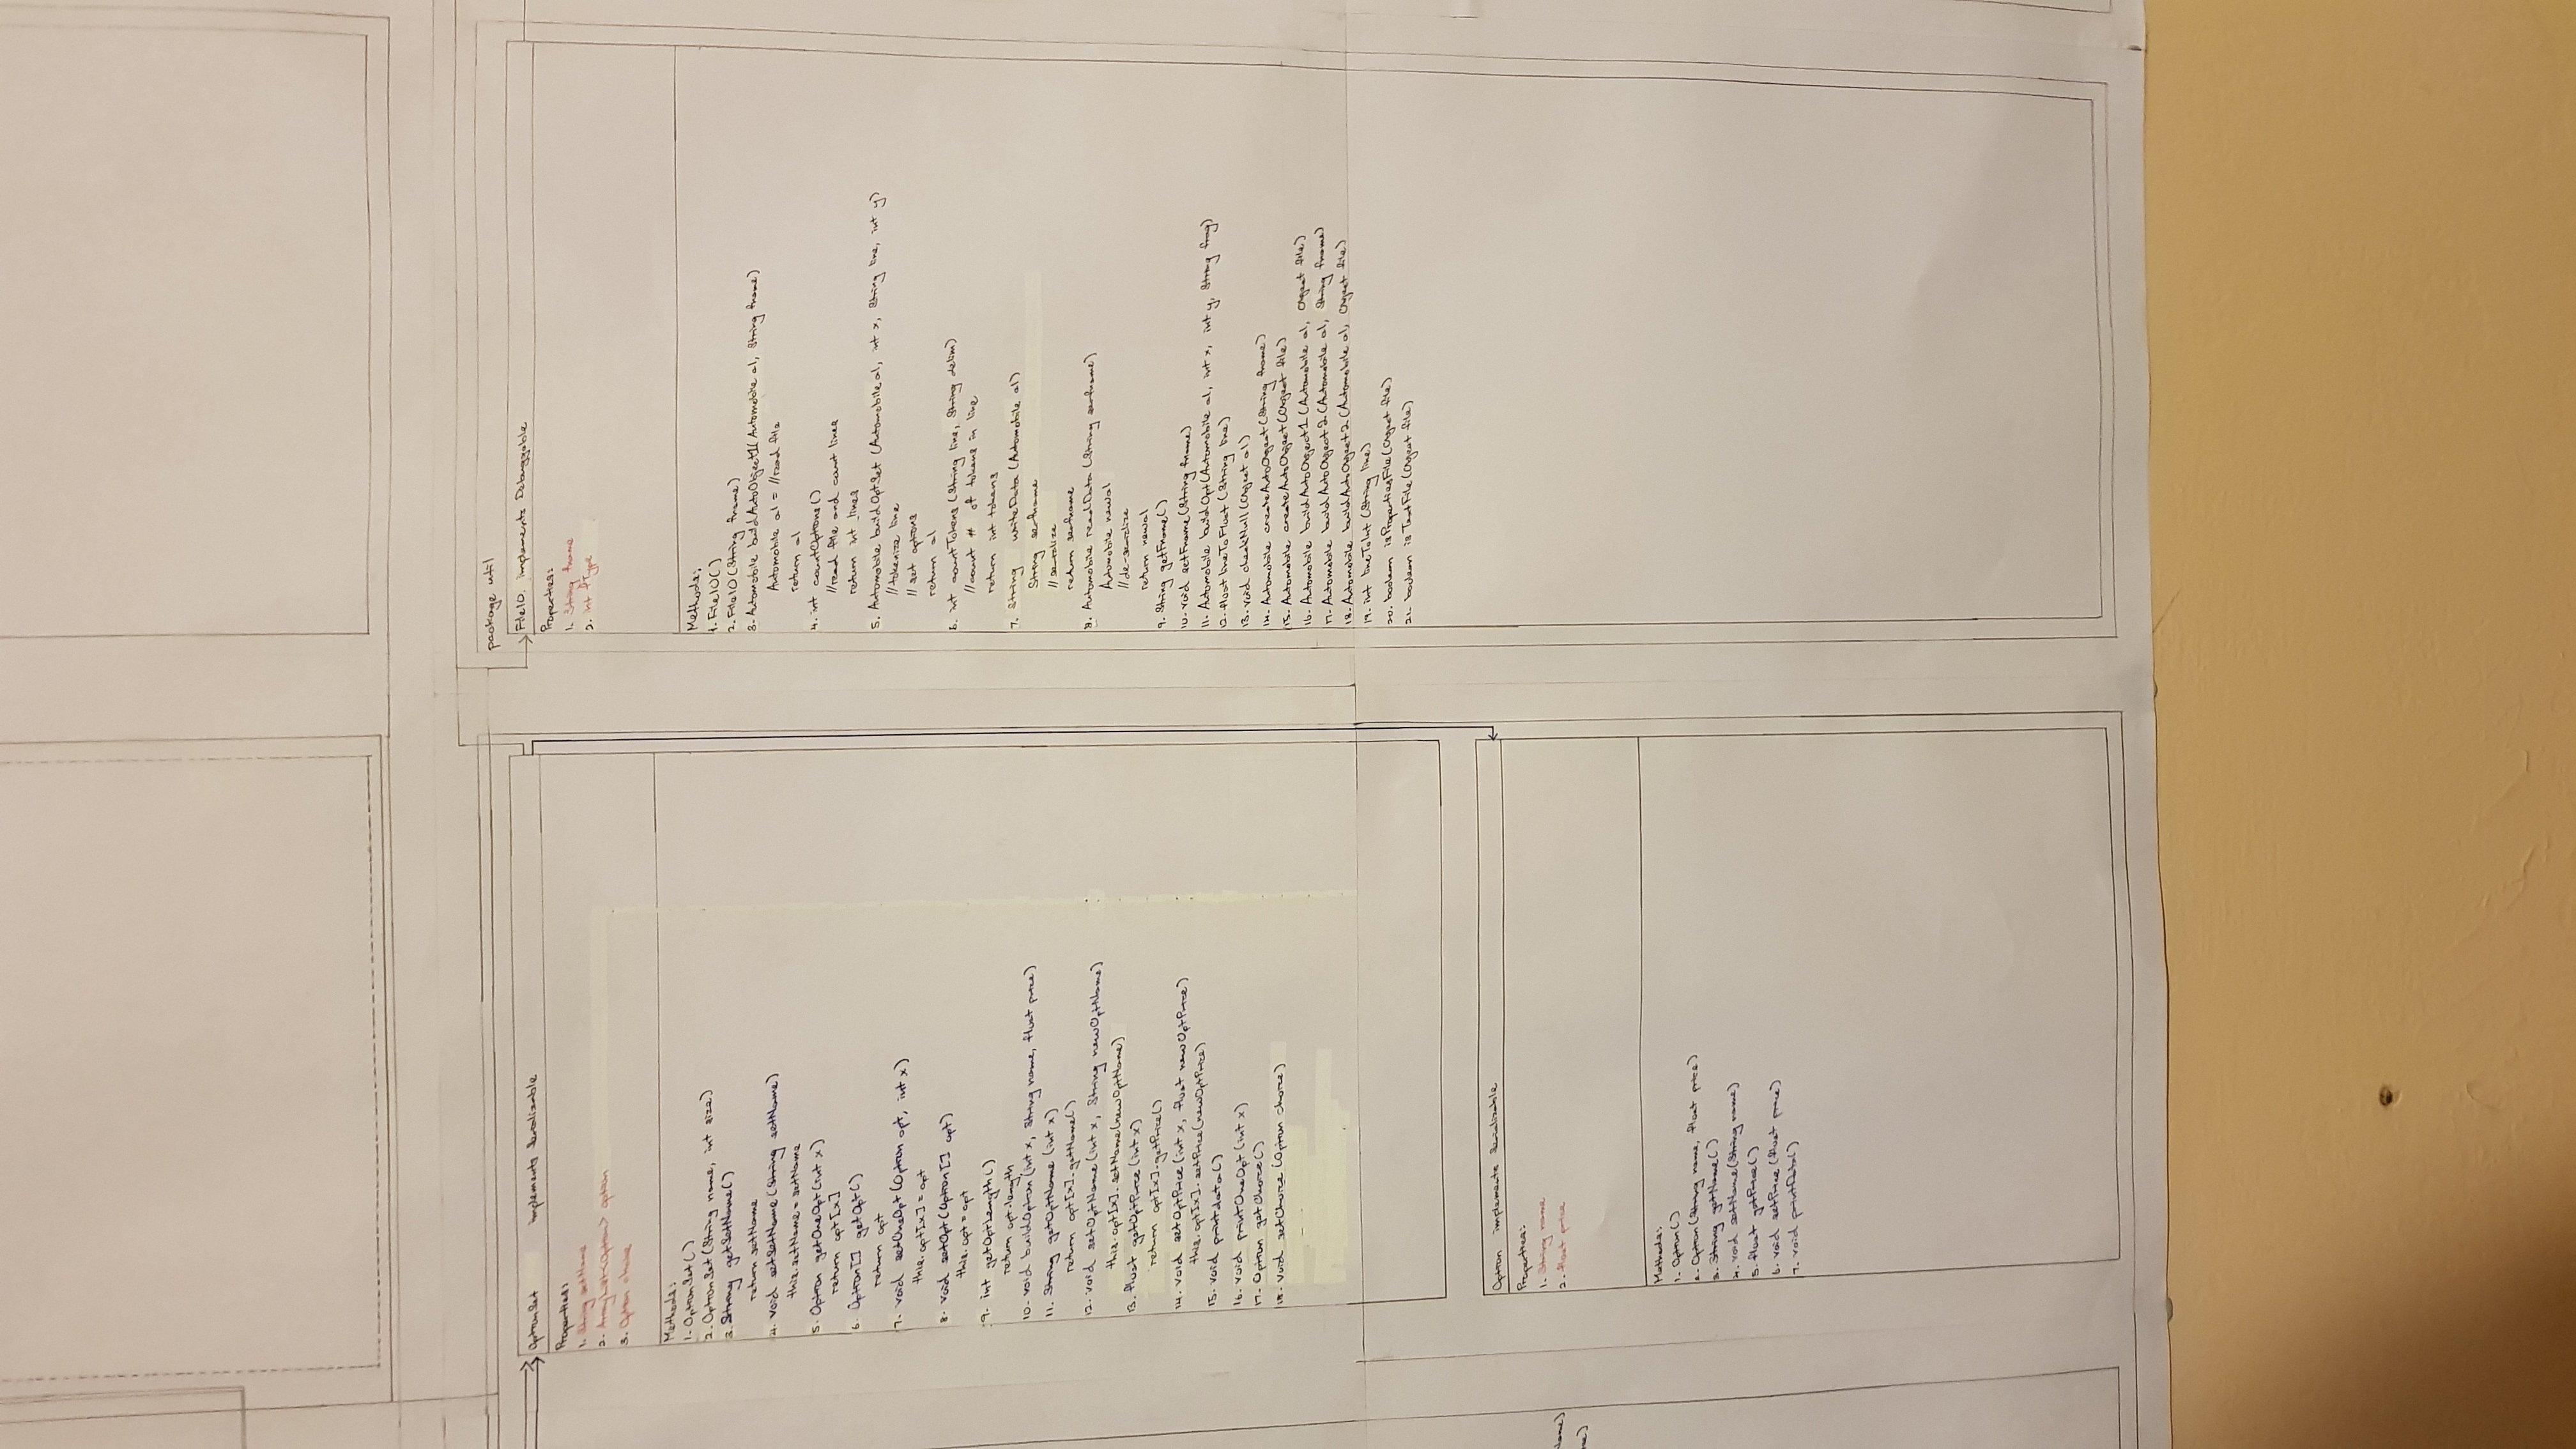 OptionSet implements Serializable
Properties:
1. String setName
2. ArrayList<Option> option
3. Option choice
Methods:
1. OptionSet()
2. OptionSet(String name, int size)
3. String getSetName()
return setName
4. void setSetName(String setName)
this.setName = setName
5. Option getOneOpt(int x)
return opt[x]
6. Option[] getOpt()
return opt
7. void setOneOpt(Option opt, int x)
this.opt[x] = opt
8. void setOpt(Option[] opt)
this.opt = opt
9. int getOptLength()
return opt.length
10. void buildOption(int x, String name, float price)
11. String getOptName(int x)
return opt[x].getName()
12. void setOptName(int x, String newOptName)
this.opt[x].setName(newOptName)
13. float getOptPrice(int x)
return opt[x].getPrice()
14. void setOptPrice(int x, float newOptPrice)
this.opt[x].setPrice(newOptPrice)
15. void printdata()
16. void printOneOpt(int x)
17. Option getChoice()
18. void setChoice(Option choice)
Option implements Serializable
Properties:
1. String name
2. float price
Methods:
1. Option()
2. Option(String name, float price)
3. String getName()
4. void setName(String name)
5. float getPrice()
6. void setPrice(float price)
7. void printData()
package util
FileIO implements Debuggable
Properties:
1. String fname
2. int fType
Methods:
1. FileIO()
2. FileIO(String fname)
3. Automobile buildAutoObject1(Automobile a1, String fname)
Automobile a1 = //read file
return a1
4. int countOptions()
//read file and count lines
return int lines
5. Automobile buildOptSet(Automobile a1, int x, String line, int y)
//tokenize line
// set options
return a1
6. int countTokens(String line, String delim)
//count # of tokens in line
return int tokens
7. String writeData(Automobile a1)
String serfname
// serialize
return serfname
8. Automobile readData(String serfname)
Automobile newa1
//de-serialize
return newa1
9. String getFname()
10. void setFname(String fname)
11. Automobile buildOpt(Automobile a1, int x, int y, String frag)
12. float lineToFloat(String line)
13. void checkNull(Object a1)
14. Automobile createAutoObject(String fname)
15. Automobile createAutoObject(Object file)
16. Automobile buildAutoObject1(Automobile a1, Object file)
17. Automobile buildAutoObject2(Automobile a1, String fname)
18. Automobile buildAutoObject2(Automobile a1, Object file)
19. int lineToInt(String line)
20. boolean isPropertiesFile(Object file)
21. boolean isTextFile(Object file)